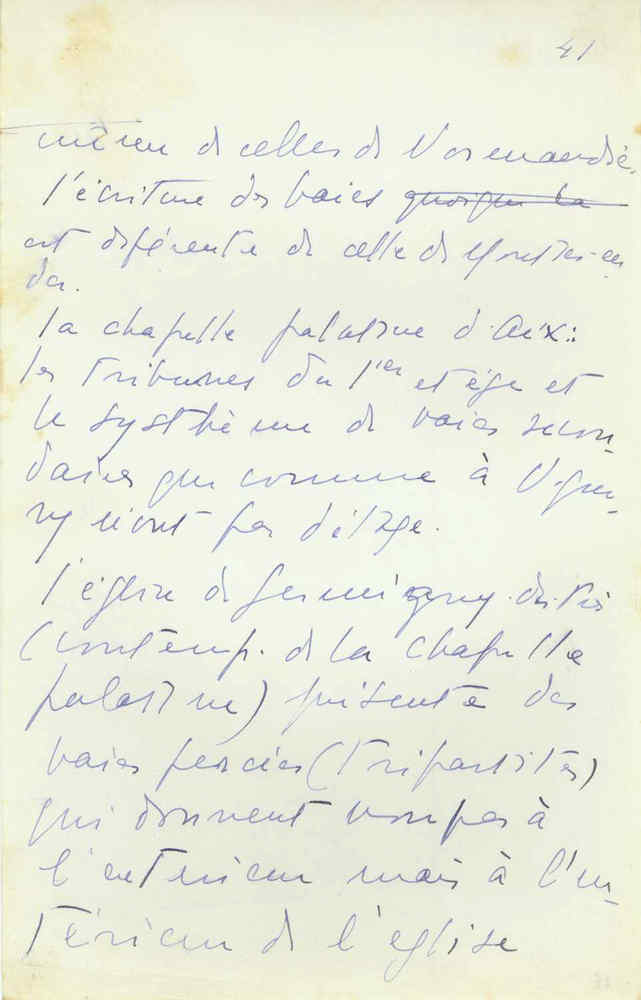 41
même de celles de Normandie.
l'écriture des baies quoique la
est différente de celle de Montier-en
der.
la chapelle palatine d'Aix:
les tribunes du 1er etage et
le systhème de baies secon-
daires qui comme à Vigno-
ry n'ont pas d'étage.
l'église de Germigny-des-Prés
(contemp. de la chapelle
palatine) présente des
baies percées (tripartites)
qui donnent non pas à
l'extérieur mais à l'in-
térieur de l'église